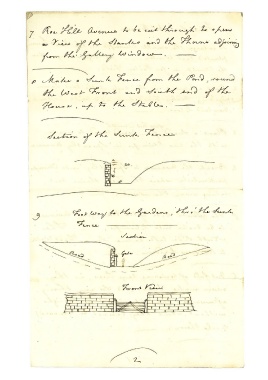 7 Roe Hill Avenue to be cut through to open
a View of the Stacks and the Thorns adjoining
from the Gallery Window.
Make a Sunk Fence from the Pond, round
the West Front and South end of the
House, up to the Stables.
Section of the Sunk Fence
9 Foot way to the Gardens, thro' the Sunk
Fence
Section
Road
Gate
Road
Front View
2